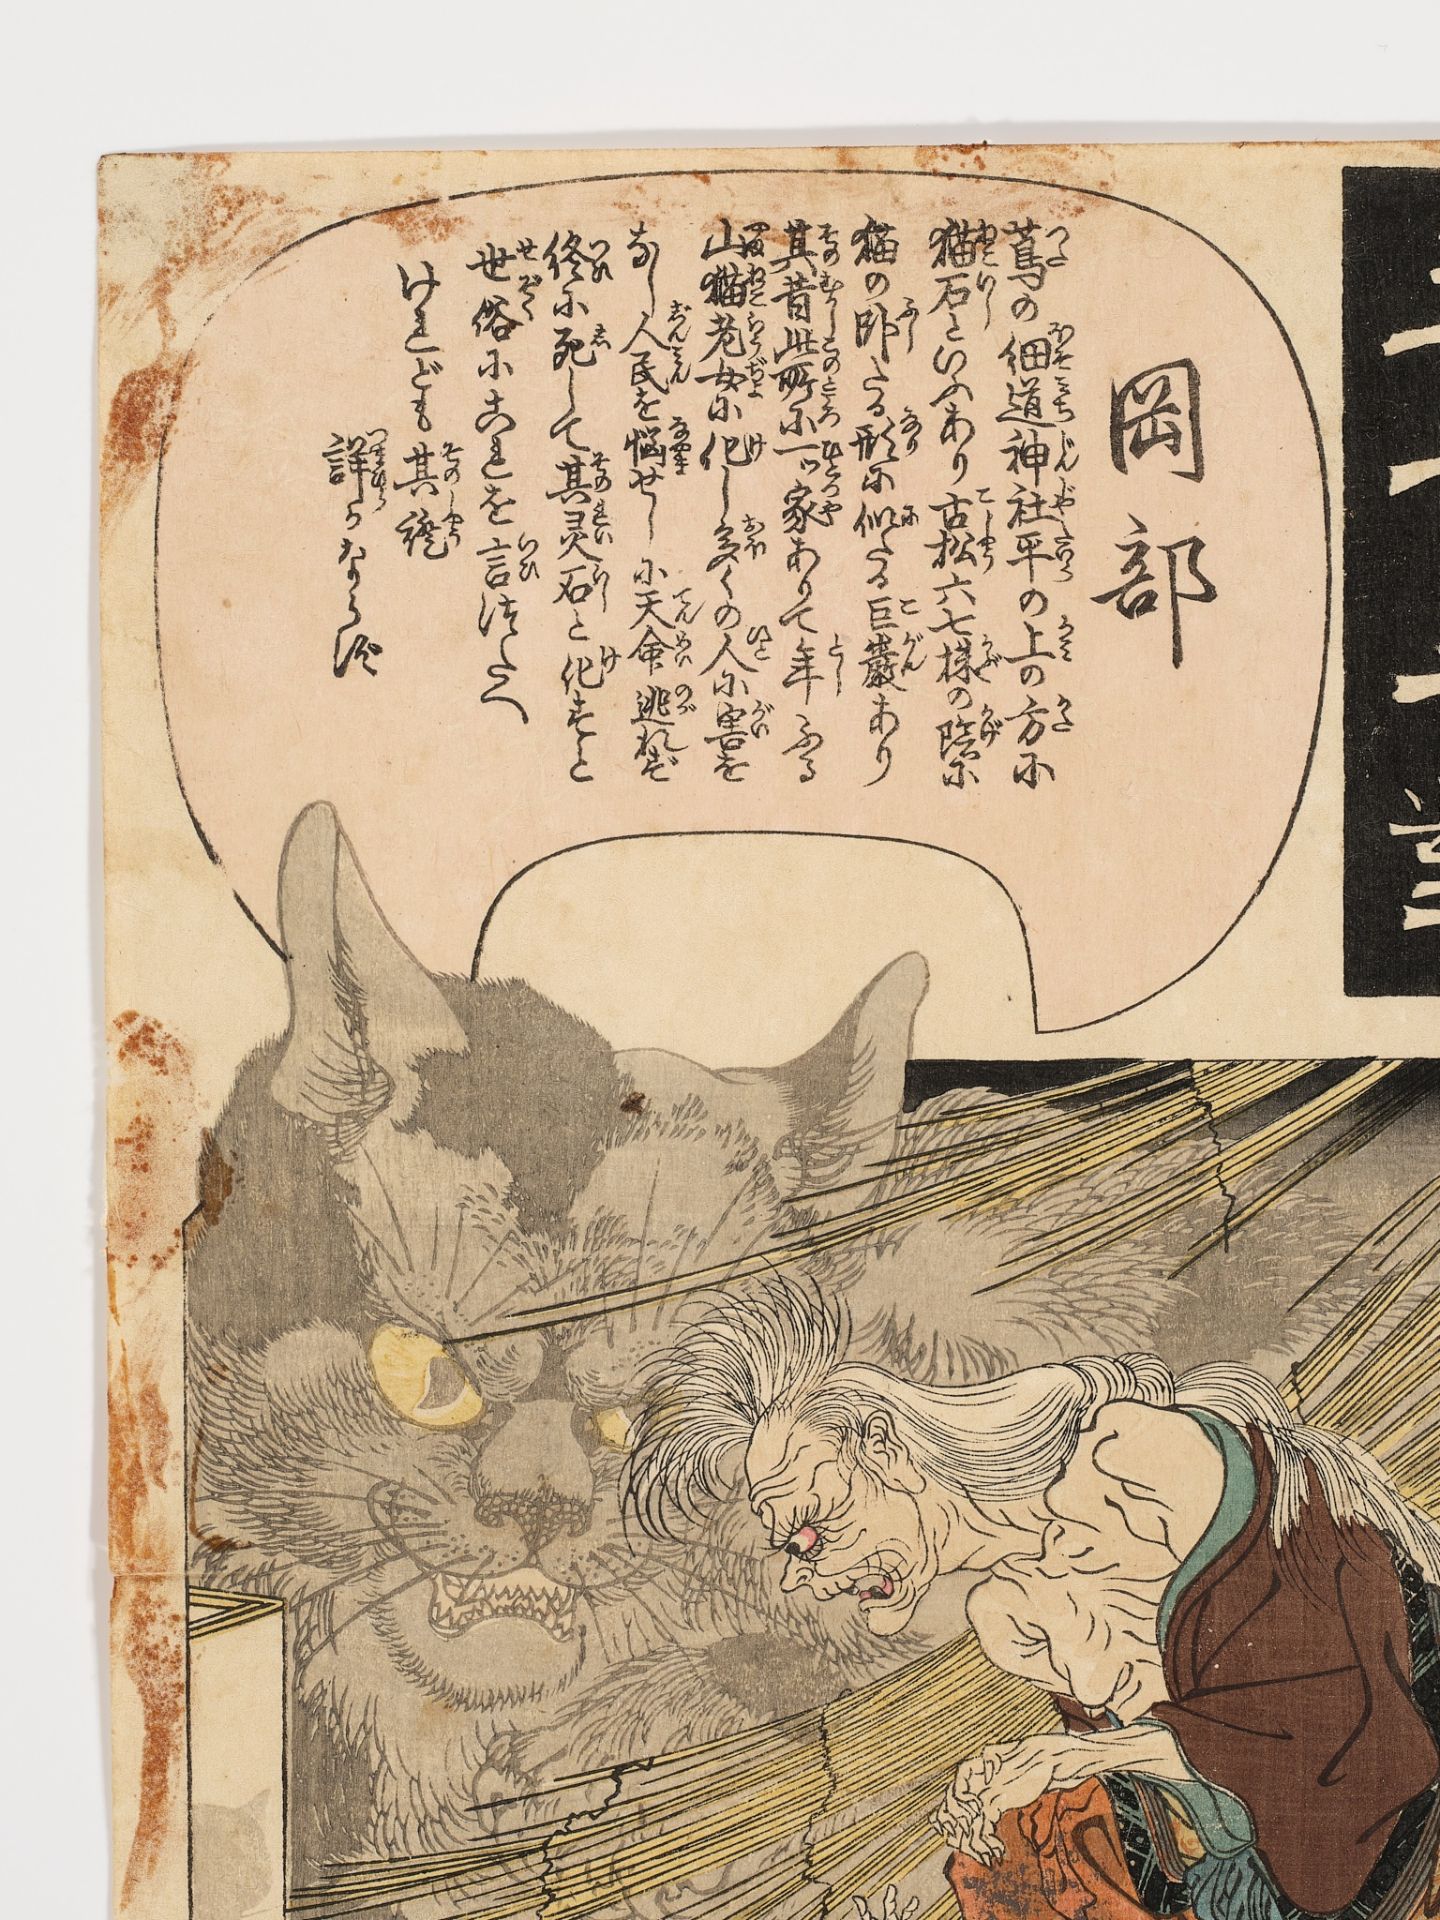 岡部
蔦の細道神社平の上の方に
猫石といふあり古松六七株の陰に
猫の臥たる形に似たる巨巌あり
其昔此所に一ッ家ありて年ふる
山猫老女に化し多くの人に害を
なし人民を悩せしに天命逃れず
終に死して其灵石と化すと
世俗にこれを言つたへ
けれども其縡
詳かならず